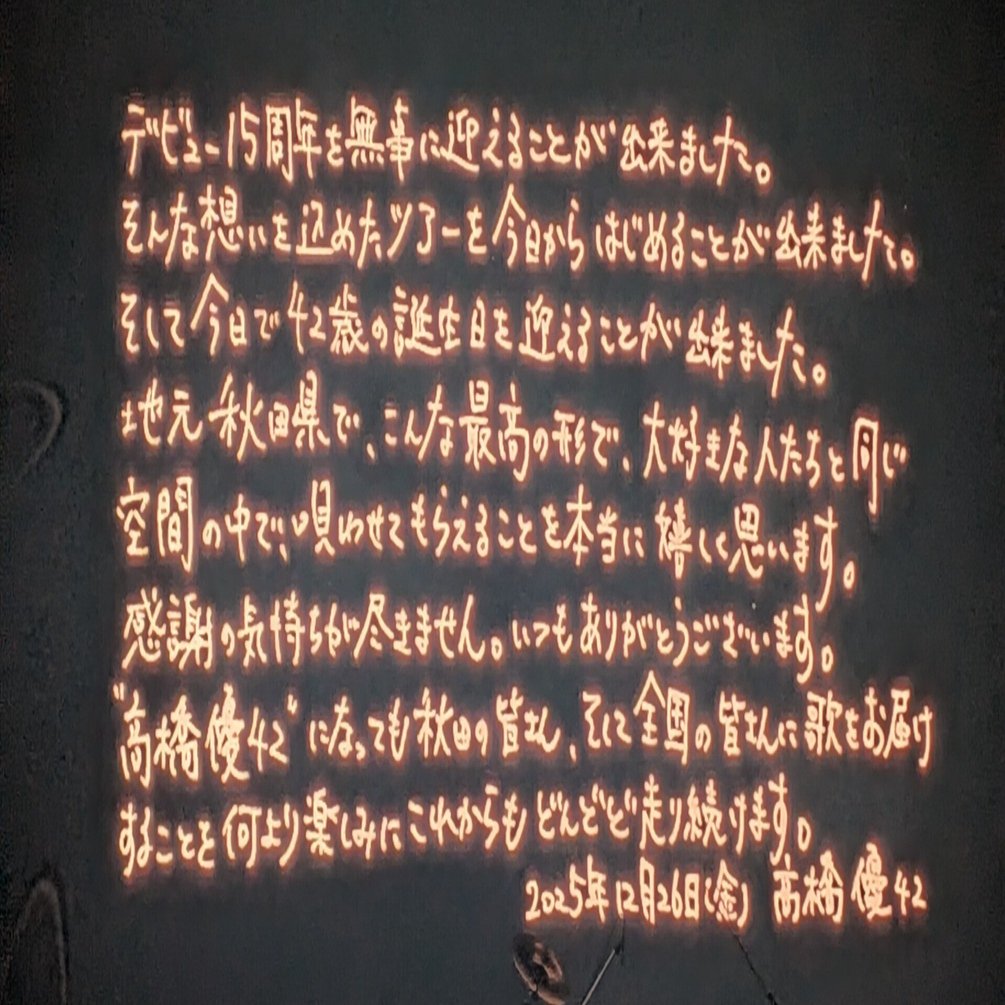 デビュー15周年を無事に迎えることが出来ました。
そんな想いを込めたツアーを今日からはじめることが出来ました。
そして今日で42歳の誕生日を迎えることが出来ました。
地元秋田県で、こんな最高の形で、大好きな人たちと同じ
空間の中で、唄わせてもらえることを本当に嬉しく思います。
感謝の気持ちが尽きません。いつもありがとうございます。
"高橋優42"になっても秋田の皆さん、そして全国の皆さんに歌をお届け
することを何より楽しみにこれからもどんどど走り続けます。
2025年12月26日(金) 高橋優42